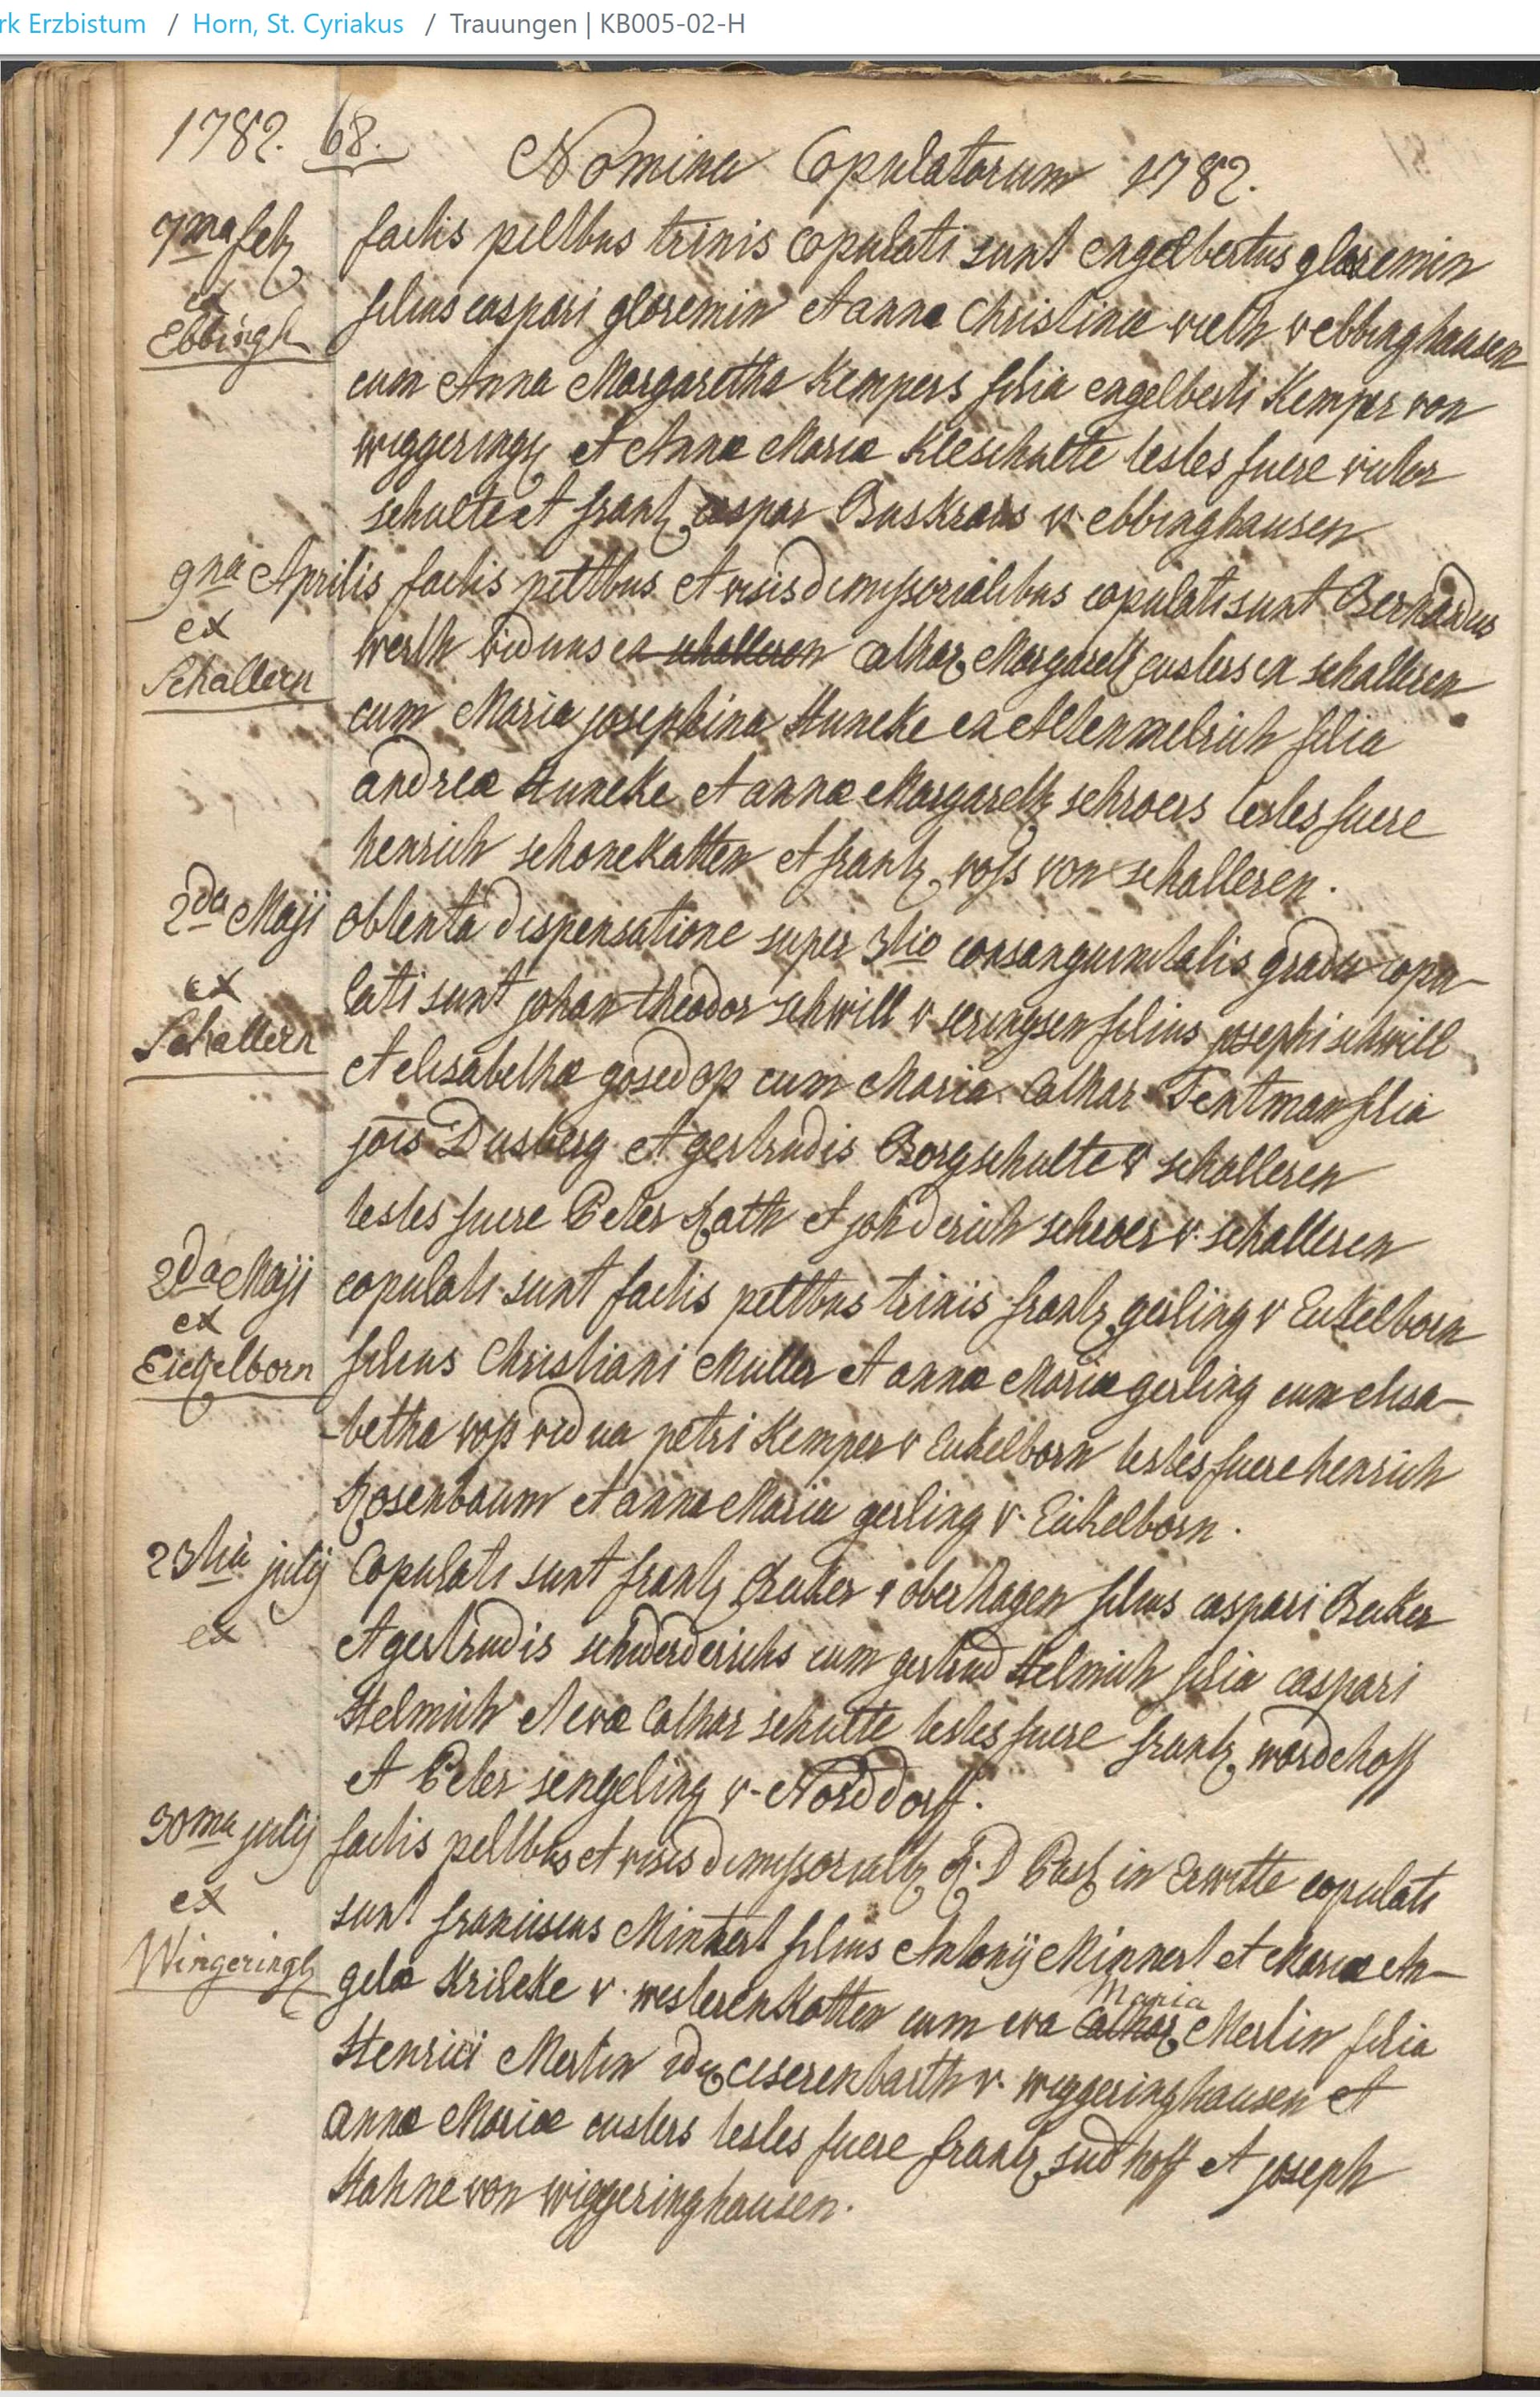 rk Erzbistum / Horn, St. Cyriakus / Trauungen | KB005-02-H
1782. 68.
Nomina Copulatorum 1782.
7ma feb
ex
Ebbingh
factis pclbus trinis copulati sunt engelbertus gloremin
filius caspari gloremin et annæ Christinæ vieth v ebbinghausen
cum Anna Margaretha Kempers filia engelberti Kemper von
wiggeringh et Annæ Mariæ Kleschulte testes fuere victor
schulte et frantz caspar Buskraus v. ebbinghausen
9na Aprilis
ex
Schallern
factis pcltbus et visis dimissorialibus copulati sunt Bernardus
werth viduus ex schalleren Cathar Margareth custers ex schalleren
cum Maria josephina Huneke ex Altenmelrich filia
andreæ Huneke et annæ Margareth schroers testes fuere
henrich schonekatten et frantz voss von schalleren.
2da Maji
ex
Schallern
obtenta dispensatione super 3tio consanguinitatis gradu copu-
lati sunt johan theodor schwill v seringsen filius josephi schwill
et elisabethæ gosedop cum Maria Cathar Tentman filia
jois Dusberg et gertrudis Borgschulte v schalleren
testes fuere Peter Rath et joh derich schroer v. schalleren
2da Maji
ex
Eickelborn
copulati sunt factis pcltbus trinis frantz gerling v Eickelborn
filius Christiani Muller et annæ Mariæ gerling cum elisa-
-betha voss vidua petri Kemper v Eickelborn testes fuere henrich
Rosenbaum et anna Maria gerling v. Eickelborn.
23tia julij
ex
Copulati sunt frantz Becker v oberhagen filius caspari Becker
et gertrudis schwerderichs cum gertrud Helmich filia caspari
Helmich et evæ Cathar schulte testes fuere frantz wordehoff
et Peter sengeling v. Norddorff.
30ma julij
ex
Wingeringh
factis pcltbus et visis dimissorialb R. D Past in Erwitte copulati
sunt franciscus Minnert filius Antonij Minnert et Mariæ An-
gelæ Krileke v. westerenkotten cum eva Cathar Maria Mertin filia
Henrici Mertin ciserenbarth v. wiggeringhausen et
annæ Mariæ custers testes fuere frantz sudhoff et joseph
Hahne von wiggeringhausen.